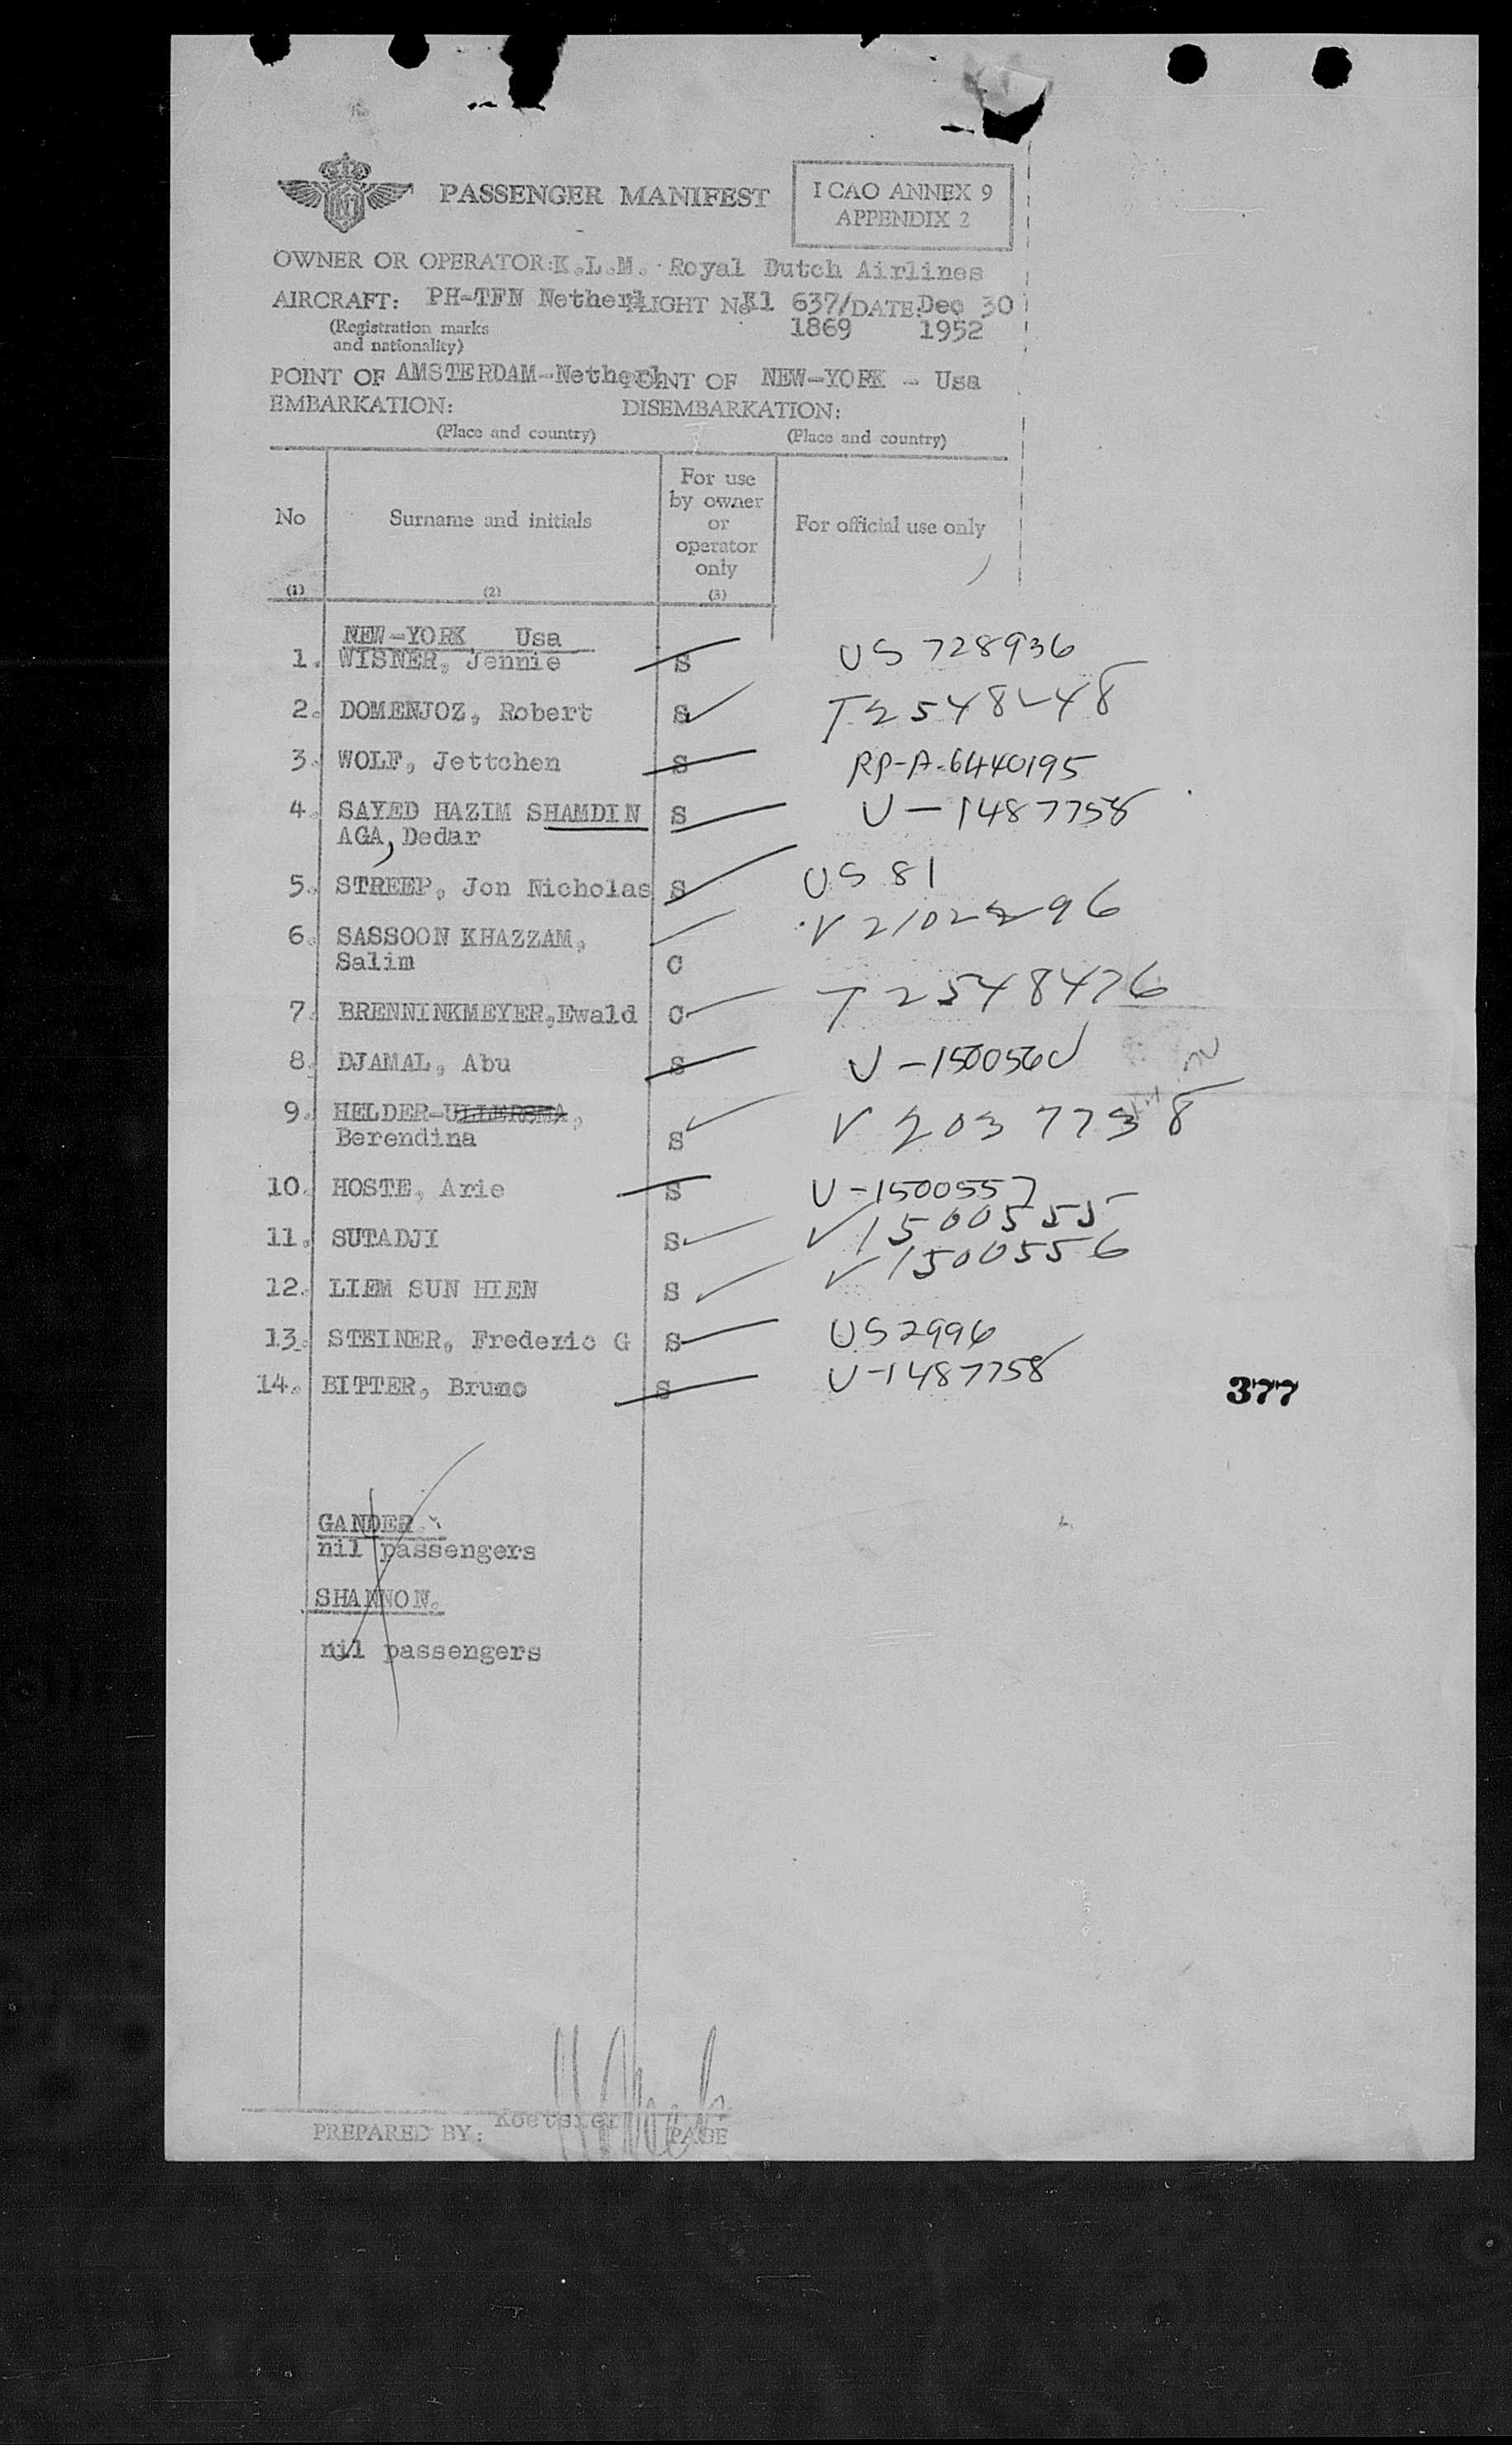 PASSENGER MANIFEST
I CAO ANNEX 9
APPENDIX 2
OWNER OR OPERATOR: K.L.M. Royal Dutch Airlines
AIRCRAFT: PH-TFN Netherl FLIGHT No Kl 637/ DATE: Dec 30
(Registration marks 1869 1952
and nationality)
POINT OF AMSTERDAM-Netherl POINT OF NEW-YORK - Usa
EMBARKATION: DISEMBARKATION:
(Place and country) (Place and country)
No Surname and initials For use by owner or operator only For official use only
(1) (2) (3)
NEW-YORK Usa
1. WISNER, Jennie S US 728936
2. DOMENJOZ, Robert S
3. WOLF, Jettchen S RP-A-6440195
4. SAYED HAZIM SHAMDIN S U-1487758
AGA, Dedar
5. STREEP, Jon Nicholas S US 81
6. SASSOON KHAZZAM,
Salim C
7. BRENNINKMEYER, Ewald C T 2548476
8. DJAMAL, Abu S
9. HELDER-ULLERSMA,
Berendina S V 2037738
10. HOSTE, Arie S U-1500557
11. SUTADJI S V 1500555
12. LIEM SUN HIEN S V 1500556
13. STEINER, Frederic G S US 2996
14. BITTER, Bruno S U-1487758
377
GANDER.
nil passengers
SHANNON.
nil passengers
PREPARED BY: Koetsier PAGE